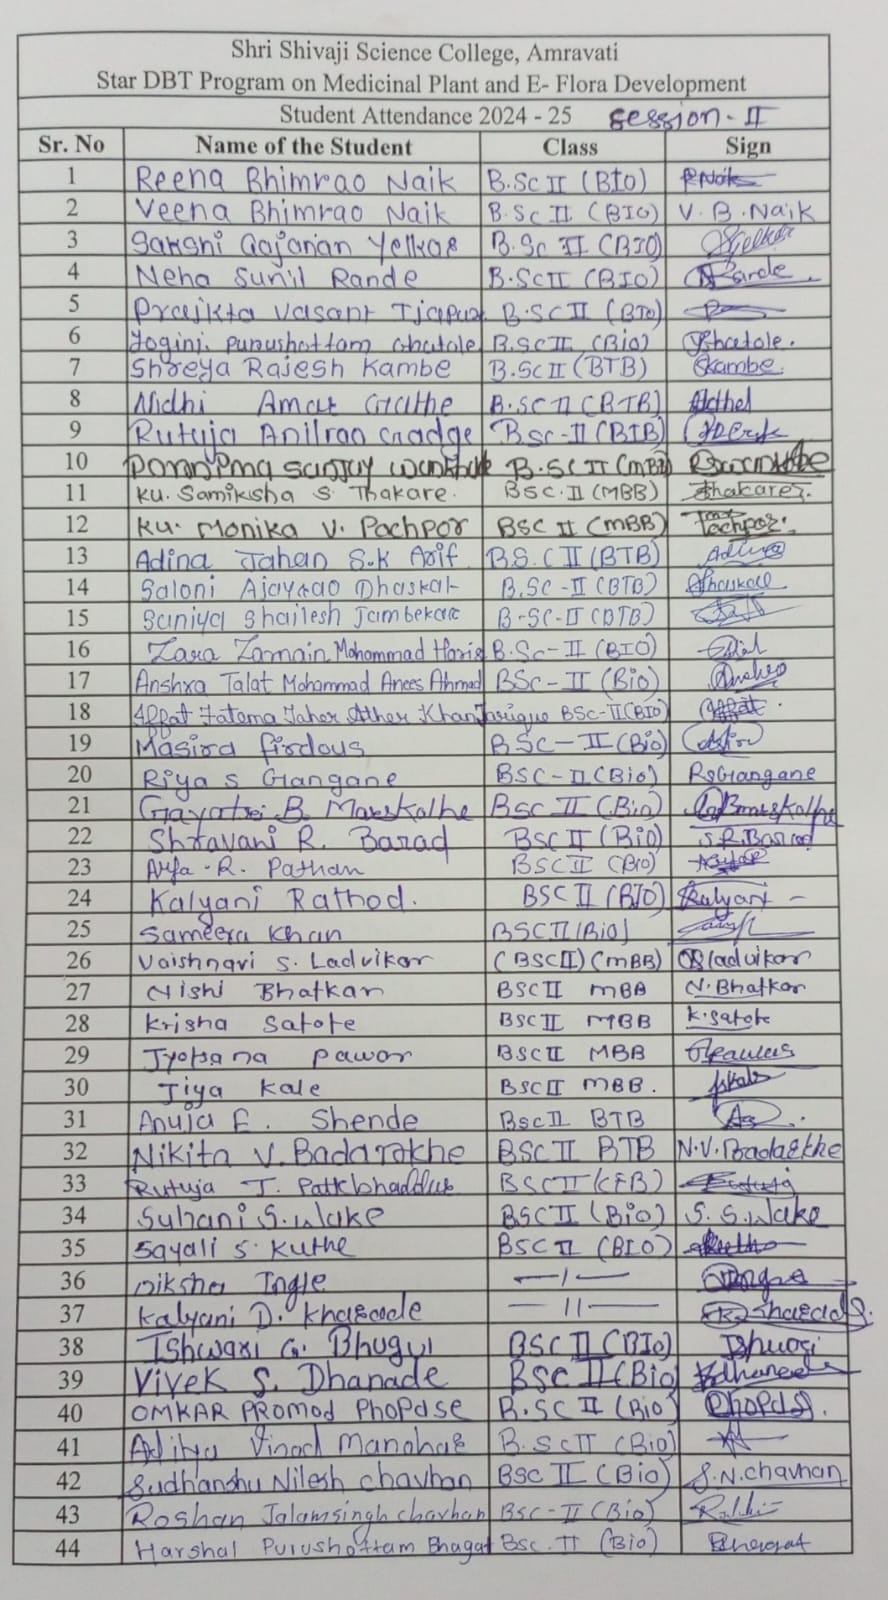 Shri Shivaji Science College, Amravati
Star DBT Program on Medicinal Plant and E- Flora Development
Student Attendance 2024 - 25 Session - II
Sr. No Name of the Student Class Sign
1 Reena Bhimrao Naik B.Sc II (BIO) RNaik
2 Veena Bhimrao Naik B.Sc II (BIO) V. B. Naik
3 Sakshi Gajanan Yelkar B.Sc II (BIO)
4 Neha Sunil Rande B.Sc II (BIO)
5 Prajkta Vasant B.Sc II (BIO)
6 Yogini. Purushottam Ghatole B.Sc II (Bio) Ghatole.
7 Shreya Rajesh Kambe B.Sc II (BTB) Kambe
8 Nidhi Amar B.Sc II (BTB)
9 Rutuja Anilrao Gadge BSc-II (BTB)
10 Sanjay B.SC II (MBB)
11 Ku. Samiksha S. Thakare. BSC. II (MBB) Thakare.
12 Ku. Monika V. Pachpor BSC II (MBB) Pachpor.
13 Adina Jahan S.K Arif B.S.C II (BTB)
14 Saloni Ajayrao Dhaskat B.SC -II (BTB)
15 Saniya Shailesh Jambekar B-SC-II (BTB)
16 Zara Zamain Mohammad Haris B.Sc-II (BIO)
17 Anshra Talat Mohammad Anees Ahmad BSc-II (Bio)
18 Iffat Fatema Taher Ather Khan BSc-II (BIO)
19 Masira firdous BSC-II (Bio)
20 Riya S Gangane BSC-II (Bio) RSGangane
21 Gayatri B. Marskolhe BSC II (Bio)
22 Shravani R. Barad BSC II (Bio) S.R.Barad
23 Arfa . R. Pathan BSC II (Bio)
24 Kalyani Rathod. BSC II (BIO) Kalyani
25 Sameera Khan BSC II (Bio)
26 Vaishnavi S. Ladvikar (BSC II) (MBB) Ladvikar
27 Nishi Bhatkar BSC II MBB N. Bhatkar
28 Krisha Satote BSC II MBB K. Satote
29 Jyotsana Pawar BSC II MBB
30 Jiya Kale BSC II MBB.
31 Anuja E. Shende BSC II BTB
32 Nikita V. Badarakhe BSC II BTB N.V. Badarkhe
33 Rutuja J. BSC II
34 Suhani S. Wake BSC II (Bio) S. S. Wake
35 Sayali S. Kuthe BSC II (BIO)
36 Diksha Ingle —ı—
37 Kalyani D. Kharode — ıı —
38 Ishwari G. BSC II (BIO)
39 Vivek S. Dhanade BSC II (Bio)
40 OMKAR PROMOD PhoPase B.SC II (Bio)
41 Aditya Vinod Manohar B.SC II (Bio)
42 Sudhanshu Nilesh Chavhan BSC II (Bio) S.N.Chavhan
43 Roshan Jalamsingh Chavhan BSC-II (Bio)
44 Harshal Purushottam Bhagat BSc. II (Bio) Bhagat